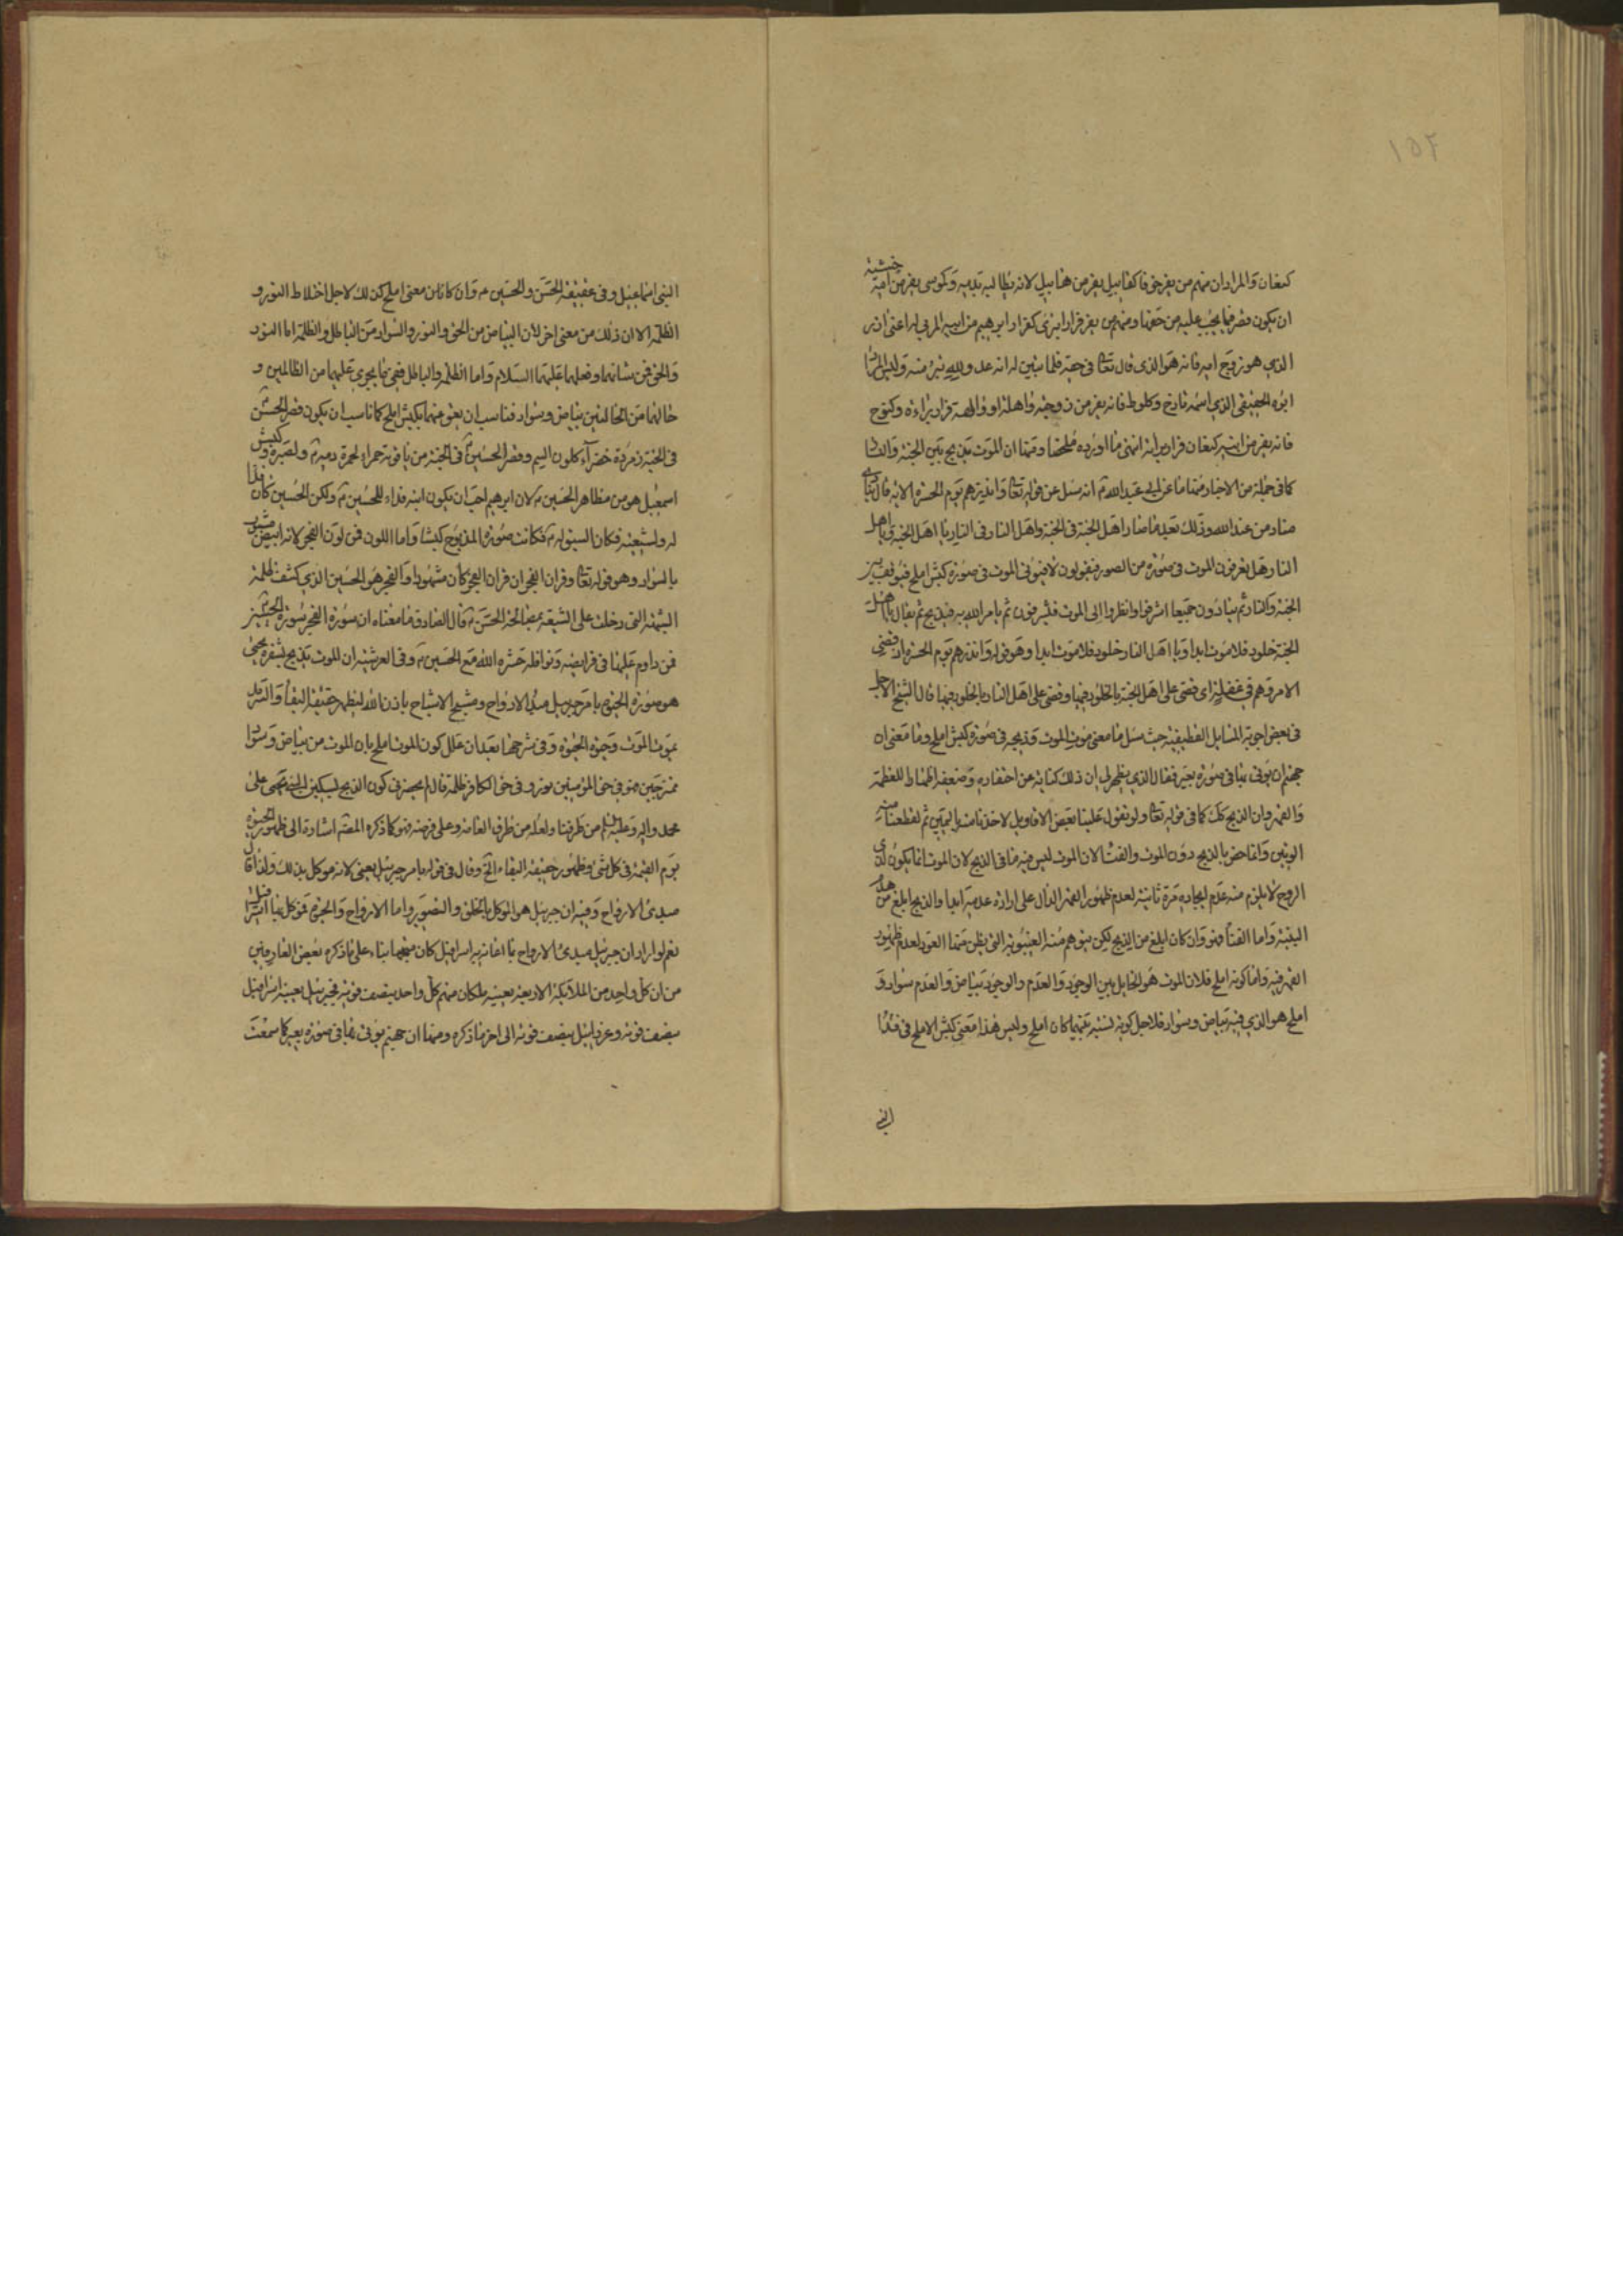 ١٥٢
كنعان والمراد ان منهم من يفر خوفا كقابيل يفر من هابيل لانه يطالبه بدمه وكموسى يفر من امه خشية
ان يكون قصر فيما يجب عليه من حقها ومنهم من يفر فرار ابرئ كفرار ابرهيم من ابيه المربي له اعنى ازر
الذي هو زوج امه فانه هو الذي قال تعالى في حقه فلما تبين له انه عدو لله تبرء منه وليس المراد
ابوه الحقيقي الذي اسمه تارخ وكلوط فانه يفر من زوجته واهله او والهة فرار براءة وكنوح
فانه يفر من ابنه كنعان فرار براءة انتهى ما اورده ملخصا ومنها ان الموت يذبح بين الجنة والنار
كما في جملة من الاخبار منها ما عن ابي عبد الله ع انه سئل عن قوله تعالى وانذرهم يوم الحسرة الاية قال ينادي
مناد من عند الله وذلك بعد ما صار اهل الجنة في الجنة واهل النار في النار يا اهل الجنة ويا اهل
النار هل تعرفون الموت في صورة من الصور فيقولون لا فيؤتى الموت في صورة كبش املح فيوقف بين
الجنة والنار ثم ينادون جميعا اشرفوا وانظروا الى الموت فيشرفون ثم يامر الله به فيذبح ثم يقال يا اهل
الجنة خلود فلا موت ابدا ويا اهل النار خلود فلا موت ابدا وهو قوله وانذرهم يوم الحسرة اذ قضي
الامر وهم في غفلة اى قضى على اهل الجنة بالخلود فيها وقضى على اهل النار بالخلود فيها قال الشيخ الاجل
في بعض اجوبة المسايل القطيفية حيث سئل ما معنى موت الموت وذبحه في صورة كبش املح وما معنى ان
جهنم ان يؤتى بها في صورة بعير فقال الذي يظهر لي ان ذلك كناية عن احتقاره وضعفه اظهارا للعظمة
والقهر وان الذبح كك كما في قوله تعالى ولو تقول علينا بعض الاقاويل لاخذنا منه باليمين ثم لقطعنا منه
الوتين وانما خص بالذبح دون الموت والفناء لان الموت ليس فيه ما في الذبح لان الموت انما يكون لذي
الروح لا يلزم منه عدم ايجاده مرة ثانية لعدم ظهور القهر الدال على ارادة عدمه ابدا والذبح ابلغ من هذه
الحيثية واما الفناء فهو وان كان ابلغ من الذبح لكن يتوهم منه الغيبوبة التى يظن معها العود لعدم ظهور
القهر فيه واما كونه املح فلان الموت هو الحايل بين الوجود والعدم والوجود بياض والعدم سواد و
املح هو الذي فيه بياض وسواد فلاجل كونه نسبة بينهما كان املح وليس هذا معنى كبش الاملح في فداء
النبي
النبى اسماعيل وفي عقيقة الحسن والحسين ع وان كانا بمعنى املح كذلك لاجل اختلاط النور و
الظلمة الا ان ذلك من معنى اخر لان البياض من الحق والنور والسواد من الباطل والظلمة اما النور
والحق فمن شانهما وفعلهما عليهما السلام واما الظلمة والباطل فهى ما يجرى عليهما من الظالمين و
حالهما من الحالتين بياض وسواد فناسب ان يعق منهما بكبش املح كما ناسب ان يكون قصر الحسن ع
في الجنة زمردة خضراء كلون السم وقصر الحسين ع في الجنة من ياقوتة حمراء لحمرة دمه ع ولصيرورة كبش
اسمعيل هو من مظاهر الحسين ع لان ابرهيم احب ان يكون ابنه فداء للحسين ع ولكن الحسين كان فداء
له ولشيعته فكان السبق له ع فكانت صورة المذبوح كبشا واما اللون فمن لون الفجر لانه ابيض مشوب
بالسواد وهو قوله تعالى وقران الفجر ان قران الفجر كان مشهودا والفجر هو الحسين الذي كشف ظلمة
الشبهة التى دخلت على الشيعة بمصالحة الحسن ع قال الصادق ما معناه ان سورة الفجر سورة الحسين ع
فمن داوم عليها في فرايضه ونوافله حشره الله مع الحسين ع وفي العرشية ان الموت يذبح بشفرة يحيى
هو صورة الحيوة بامر جبريل مبدء الارواح ومشبح الاشباح باذن الله ليظهر حقيقة البقاء والسرمد
بموت الموت وحيوة الحيوة وفي شرحها بعد ان علل كون الموت املح بان الموت من بياض وسواد
ممتزجين فهو في حق المؤمنين نور وفي حق الكافر ظلمة قال لم يحضرني كون الذبح بسكين اليد يحيى على
محمد واله وعليه السلم من طرقنا ولعله من طرق العامة وعلى فرضه فهو كما ذكره المص اشارة الى ظهور الحيوة
يوم القيمة في كل شئ وظهور حقيقة البقاء الخ وقال في قوله بامر جبرئيل يعنى لانه موكل بذلك ولذا قال
مبدئ الارواح وفيه ان جبرئيل هو الموكل بالخلق والتصوير واما الارواح والحيوة فموكل بها اسرافيل
نعم لو اراد ان جبرئيل مبدئ الارواح باعانة اسرافيل كان متجها بناء على ما ذكره بعض العارفين
من ان كل واحد من الملائكة الاربعة يعينه ملكان منهم كل واحد بنصف قوته فجبرئيل يعينه اسرافيل
بنصف قوته وعزرائيل بنصف قوته الى اخر ما ذكره ومنها ان جهنم يؤتى بها في صورة بعير كما سمعت